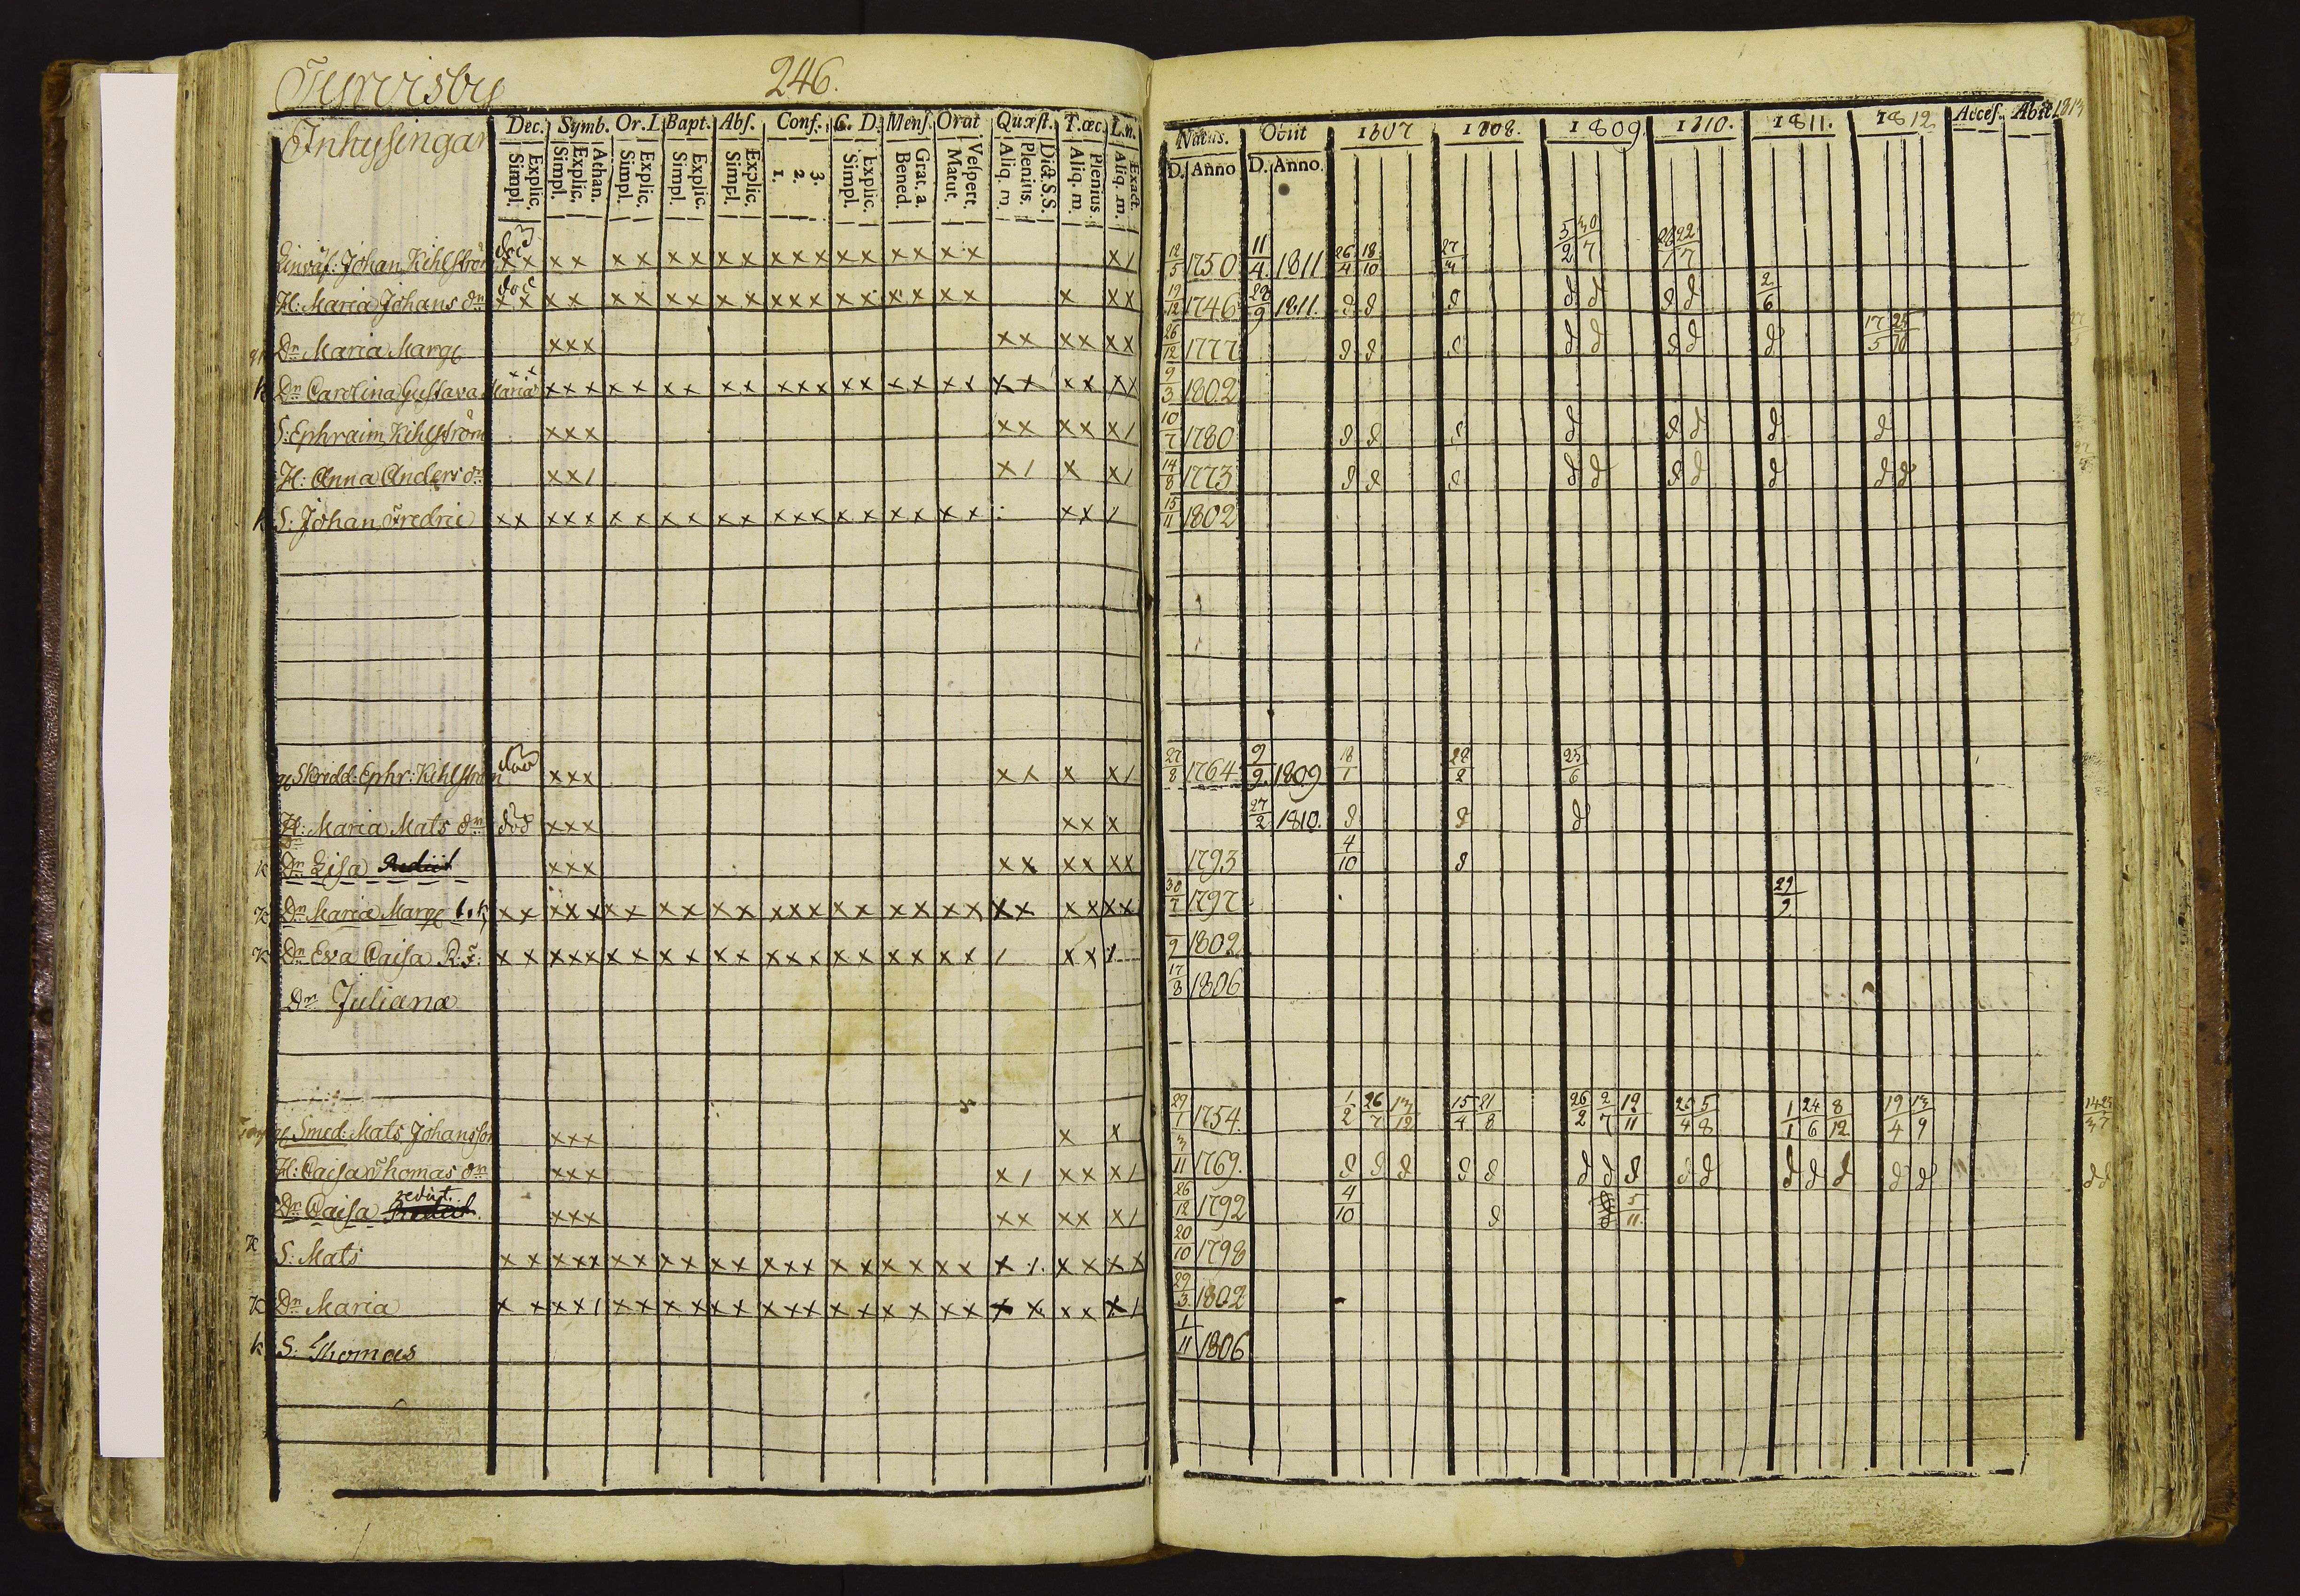 246.
Inhysingar
Dec. Symb. Or. L. Bapt. Abs. Conf. C. D. Mens. Orat Quæst. T. œc. L. n.
Simpl. Explic. Simpl. Explic. Athan. Simpl. Explic. Simpl. Explic. Simpl. Explic. 1. 2. 3. Simpl. Explic. Bened. Grat. a. Matut. Vespert. Aliq. m. Plenius. Dict. S.S. Aliq. m. Plenius. Aliq. m. Exact.
Natus. Obiit 1807 1808. 1809. 1810. 1811. 1812 Acces. Abit 1813
D. Anno D. Anno.
Johan Kihlström död x x x x x x x x x x x x x x x x x x x x x / 12/5 1750 11/4 1811 26/4 18/10 5/2 30/7
H: Maria Johans dr död x x x x x x x x x x x x x x x x x x x x x x 19/12 1746 28/9 1811. d d d d d d d 2/6
Dr Maria Marg x x x x x x x x x 26/12 1777 d d d d d d d d 17/5 25/10
k Dr Carolina Gustava Maria x x x x x x x x x x x x x x x x x x x x x x x x x x 9/3 1802
S: Ephraim Kihlström x x x x x x x x / 10/7 1780 d d d d d d d d
H: Anna Anders dr x x / x / x x / 14/8 1773 d d d d d d d d d d
k S: Johan Fredric x x x x x x x x x x x x x x x x x x x x x x x / 15/11 1802
Skredd: Ephr: Kihlström x x x x x x x / 27/8 1764 9/2 1809 18/1 28/2 25/6
H: Maria Mats dr död x x x x x x 27/2 1810. d d d
k Dr Lisa x x x x x x x x x 1793 4/10 d
k Dr Maria Marg x x x x x x x x x x x x x x x x x x x x x x x x x x 30/7 1797 29/9
k Dr Eva Caisa R. F: x x x x x x x x x x x x x x x x x x x x / x x / 9 1802
Dr Juliana 17/3 1806
Smed: Mats Johansson x x x x x 29/1 1754. 1/2 26/7 13/12 15/4 21/8 26/2 2/7 19/11 25/4 5/8 1/1 24/6 8/12 19/4 13/9
H: Caisa Thomas dr x x x x / x x x / 3/11 1769. d d d d d d d d d d d d d d d d
Dr Caisa redit. x x x x x x x x / 26/12 1792 4/10 d 5/11.
k S: Mats x x x x x x x x x x x x x x x x x x x x x / x x x x 20/10 1798
k Dr Maria x x x x / x x x x x x x x x x x x x x x x x x x x / 29/3 1802
k S: Thomas 1/11 1806